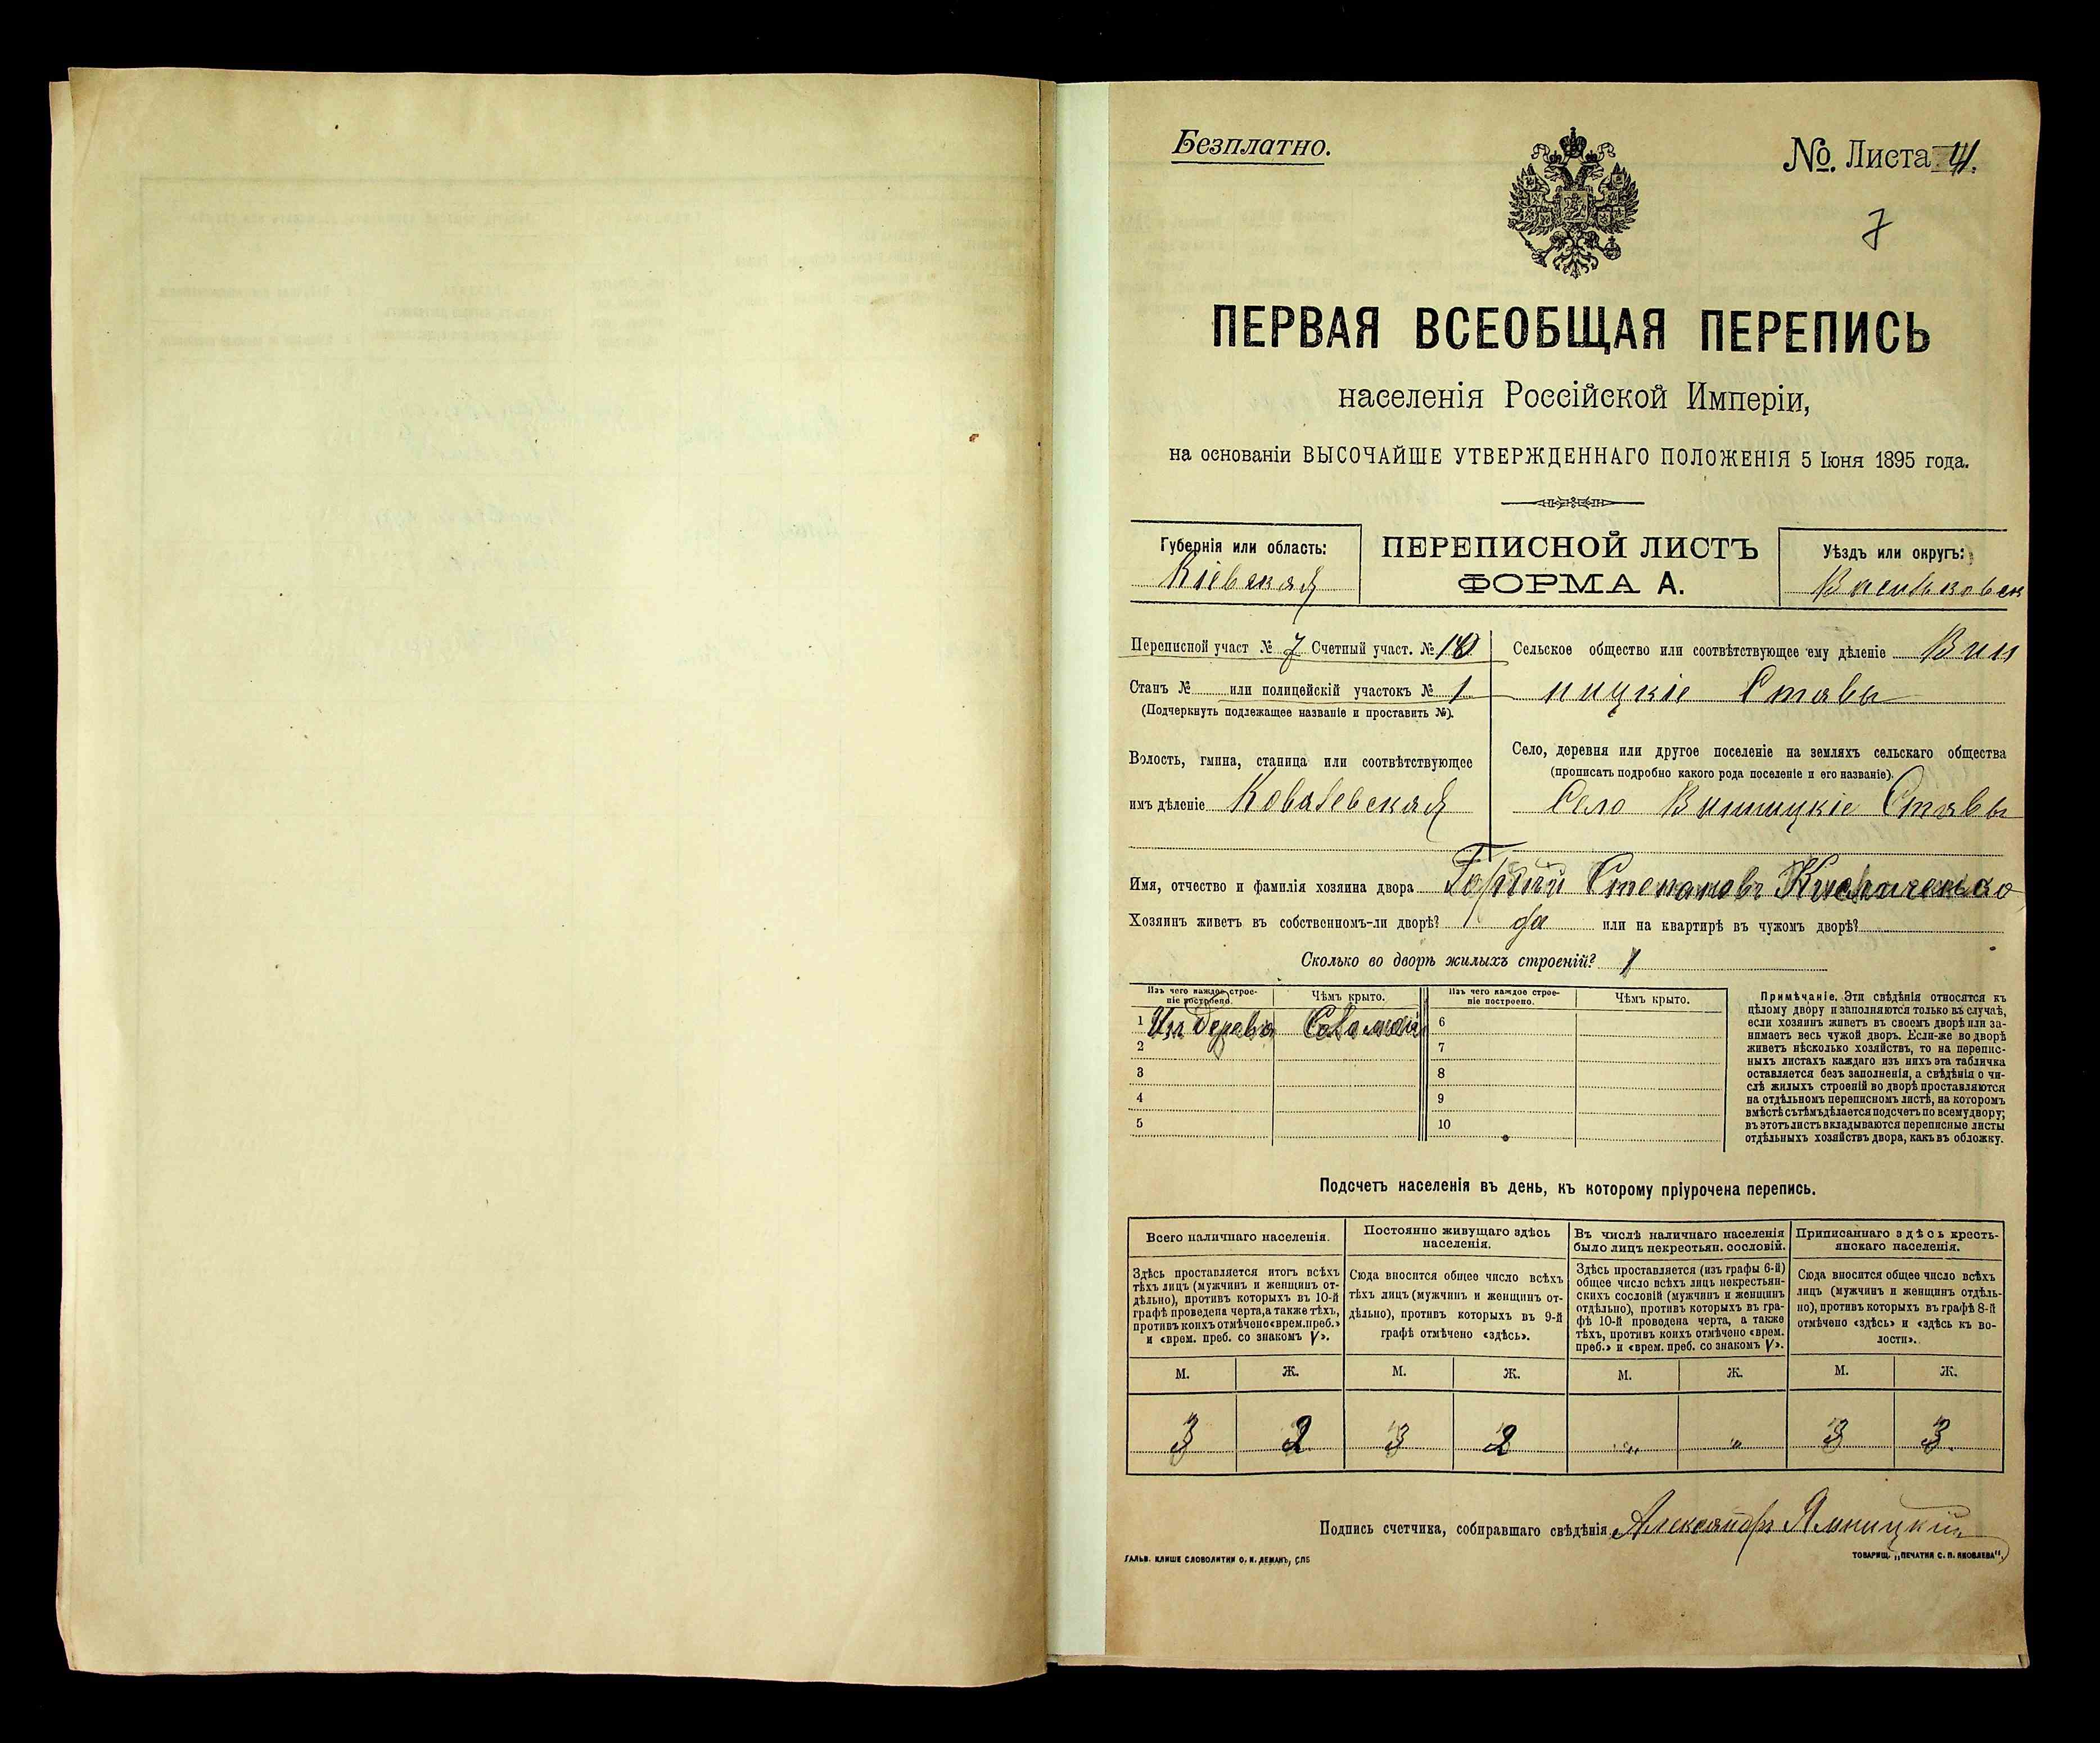 Безплатно.
№. Листа 41.
7
ПЕРВАЯ ВСЕОБЩАЯ ПЕРЕПИСЬ
населенія Россійской Имперіи,
на основаніи ВЫСОЧАЙШЕ УТВЕРЖДЕННАГО ПОЛОЖЕНІЯ 5 Іюня 1895 года.
Губернія или область:
Кіевская
ПЕРЕПИСНОЙ ЛИСТЪ
ФОРМА А.
Уѣздъ или округъ:
Васильковск
Переписной участ № 7 Счетный участ. № 10
Станъ № или полицейскій участокъ № 1
(Подчеркнуть подлежащее названіе и проставить №).
Волость, гмина, станица или соотвѣтствующее
имъ дѣленіе Ковалевская
Сельское общество или соотвѣтствующее ему дѣленіе Вин
ницкіе Ставы
Село, деревня или другое поселеніе на земляхъ сельскаго общества
(прописать подробно какого рода поселеніе и его названіе).
Село Винницкіе Ставы
Имя, отчество и фамилія хозяина двора Гордѣй Степановъ
Хозяинъ живетъ въ собственномъ-ли дворѣ? да или на квартирѣ въ чужомъ дворѣ?
Сколько во дворѣ жилыхъ строеній? 1
Изъ чего каждое строе-
ніе построено.
Чѣмъ крыто.
Изъ чего каждое строе-
ніе построено.
Чѣмъ крыто.
1 Изъ дерева Соломой 6
2 7
3 8
4 9
5 10
Примѣчаніе. Эти свѣдѣнія относятся къ
цѣлому двору и заполняются только въ случаѣ,
если хозяинъ живетъ въ своемъ дворѣ или за-
нимаетъ весь чужой дворъ. Если-же во дворѣ
живетъ нѣсколько хозяйствъ, то на перепис-
ныхъ листахъ каждаго изъ нихъ эта табличка
оставляется безъ заполненія, а свѣдѣнія о чи-
слѣ жилыхъ строеній во дворѣ проставляются
на отдѣльномъ переписномъ листѣ, на которомъ
вмѣстѣ съ тѣмъ дѣлается подсчетъ по всему двору;
въ этотъ листъ вкладываются переписные листы
отдѣльныхъ хозяйствъ двора, какъ въ обложку.
Подсчетъ населенія въ день, къ которому пріурочена перепись.
Всего наличнаго населенія.
Постоянно живущаго здѣсь
населенія.
Въ числѣ наличнаго населенія
было лицъ некрестьян. сословій.
Приписаннаго здѣсь кресть-
янскаго населенія.
Здѣсь проставляется итогъ всѣхъ
тѣхъ лицъ (мужчинъ и женщинъ от-
дѣльно), противъ которыхъ въ 10-й
графѣ проведена черта, а также тѣхъ,
противъ коихъ отмѣчено «врем. преб.»
и «врем. преб. со знакомъ V».
Сюда вносится общее число всѣхъ
тѣхъ лицъ (мужчинъ и женщинъ от-
дѣльно), противъ которыхъ въ 9-й
графѣ отмѣчено «здѣсь».
Здѣсь проставляется (изъ графы 6-й)
общее число всѣхъ лицъ некрестьян-
скихъ сословій (мужчинъ и женщинъ
отдѣльно), противъ которыхъ въ гра-
фѣ 10-й проведена черта, а также
тѣхъ, противъ коихъ отмѣчено «врем.
преб.» и «врем. преб. со знакомъ V».
Сюда вносится общее число всѣхъ
лицъ (мужчинъ и женщинъ отдѣль-
но), противъ которыхъ въ графѣ 8-й
отмѣчено «здѣсь» и «здѣсь къ во-
лости».
М. Ж. М. Ж. М. Ж. М. Ж.
3 2 3 2 „ „ 3 3
Подпись счетчика, собиравшаго свѣдѣнія Александръ Ямницкій
ГАЛЬВ. КЛИШЕ СЛОВОЛИТНИ О. И. ЛЕМАНЪ, СПБ
ТОВАРИЩ. „ПЕЧАТНЯ С. П. ЯКОВЛЕВА“